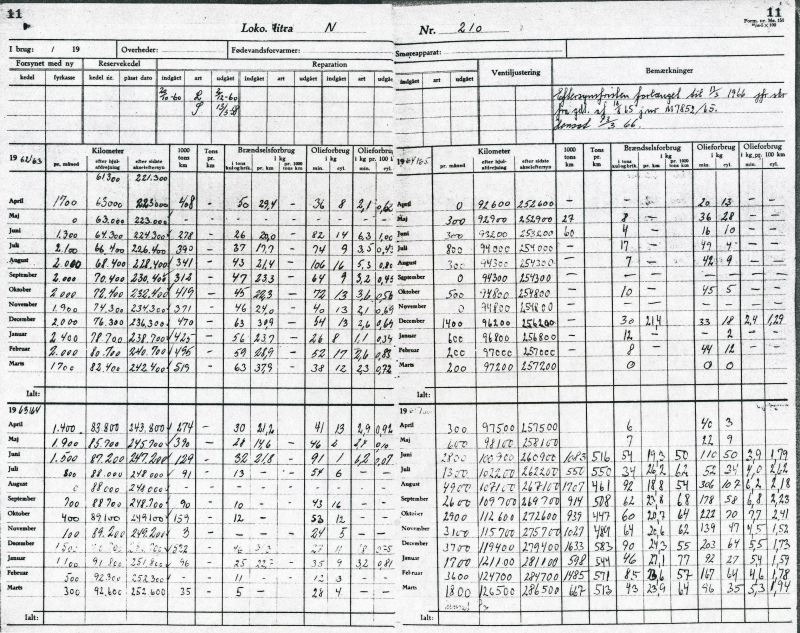 11
Loko. litra N
I brug: / 19 Overheder: Fødevandsforvarmer:
Forsynet med ny Reservekedel Reparation
kedel fyrkasse kedel nr. påsat dato indgået art udgået indgået art udgået indgået art udgået
19 62/63 pr. måned Kilometer 1000 tons km Tons pr. km Brændselsforbrug i kg Olieforbrug i kg kg pr. 100 km
efter hjulafdrejning efter sidste akseleftersyn i tons kulogbrik. pr. km pr. 1000 tons km min. cyl. min. cyl.
61300 221.300
April 1700 63000 223000 408 - 50 29,4 - 36 8 2,1
Maj 0 63.000 223.000 - - - - - - -
Juni 1.300 64.300 224.300 278 - 26 20,0 - 82 14 6,3 1,00
Juli 2.100 66.400 226.400 390 - 37 17,7 - 74 9 3,5 0,43
August 2.000 68.400 228.400 341 - 43 21,4 - 106 16 5,3 0,80
September 2.000 70.400 230.400 312 - 47 23,3 - 64 9 3,2 0,45
Oktober 2.000 72.400 232.400 419 - 45 22,3 - 72 13 3,6
November 1.900 74.300 234.300 371 - 46 24,0 - 40 13 2,1 0,69
December 2.000 76.300 236.300 470 - 63 - 54 13 2,6 0,69
Januar 2.400 78.700 238.700 425 - 56 23,7 - 26 8 1,1 0,34
Februar 2.000 80.700 240.700 495 - 59 28,9 - 52 17 2,6 0,88
Marts 1700 82.400 242.400 519 - 63 37,9 - 38 12 2,3 0,72
Ialt:
19 63/64
April 1.400 83.800 243.800 274 - 30 21,2 41 13 2,9 0,92
Maj 1.900 85.700 245.700 390 - 28 14,6 - 46
Juni 1.500 87.200 247.200 129 - 32 21,8 - 91 1 6,2 0,07
Juli 800 88.000 248.000 91 - 13 - - 54 6
August 0 88000 248.000 - - - - -
September 700 88.700 248.700 90 - 10 - 43 16
Oktober 400 89100 249100 159 - 12 - 53 12
November 100 89.200 249.200 3 - - - 24 5
December
Januar 1100 91.800 251.800 96 - 25 - 35 9 3,2 0,81
Februar 500 92.300 252.300 - - 11 - 12 3
Marts 300 92.600 252.600 35 - 5 - 28 4 -
Ialt:
11
Nr. 210
Form. nr. Ma. 151
Smøreapparat:
Ventiljustering Bemærkninger
Eftersynsfristen forlænget til 1966
M7852/65.
19 64/65 pr. måned Kilometer 1000 tons km Tons pr. km Brændselsforbrug i kg Olieforbrug i kg kg pr. 100 km
efter hjulafdrejning efter sidste akseleftersyn i tons kulogbrik. pr. km pr. 1000 tons km min. cyl. min. cyl.
April 0 92600 252600 - - - - - 20 13 - -
Maj 300 92900 252900 27 - 8 - - 36 28 - -
Juni 300 93200 253200 60 - 4 - - 16 10 - -
Juli 800 94000 254000 - - 17 - - 49 4 - -
August 300 94300 254300 - - 7 - - 42 9 - -
September 0 94300 254300 - - - - - - - -
Oktober 500 94800 254800 - - 10 - - 45 5 - -
November 0 94800 254800 - - - - - - - -
December 1400 96200 256200 - - 30 21,4 - 33 18 2,4 1,29
Januar 600 96800 256800 - - 12 - - - 2 - -
Februar 200 97000 257000 - - 8 - - 44 12 - -
Marts 200 97200 257200 - - 0 0 - 0 0 - -
Ialt:
19
April 300 97500 257500 6 40 3
Maj 600 98100 258100 7 22 9
Juni 2800 100900 260900 1083 516 54 19,3 50 110 50 3,9 1,79
Juli 1300 102200 262200 550 550 34 26,2 62 52 34 4,0 2,62
August 4900 107100 267100 1707 461 92 18,8 54 306 107 6,2 2,18
September 2600 109700 269700 914 508 62 23,8 68 178 58 6,8 2,23
Oktober 2900 112600 272600 939 447 60 20,7 64 222 70 7,7 2,41
November 3100 115700 275700 1027 489 64 20,6 62 139 47 4,5 1,52
December 3700 119400 279400 1633 583 90 24,3 55 203 64 5,5 1,73
Januar 1700 121100 281100 598 544 46 27,1 77 92 27 5,4 1,59
Februar 3600 124700 284700 1485 571 85 23,6 57 167 64 4,6 1,78
Marts 1800 126500 286500 667 513 43 23,9 64 96 35 5,3 1,94
Ialt: